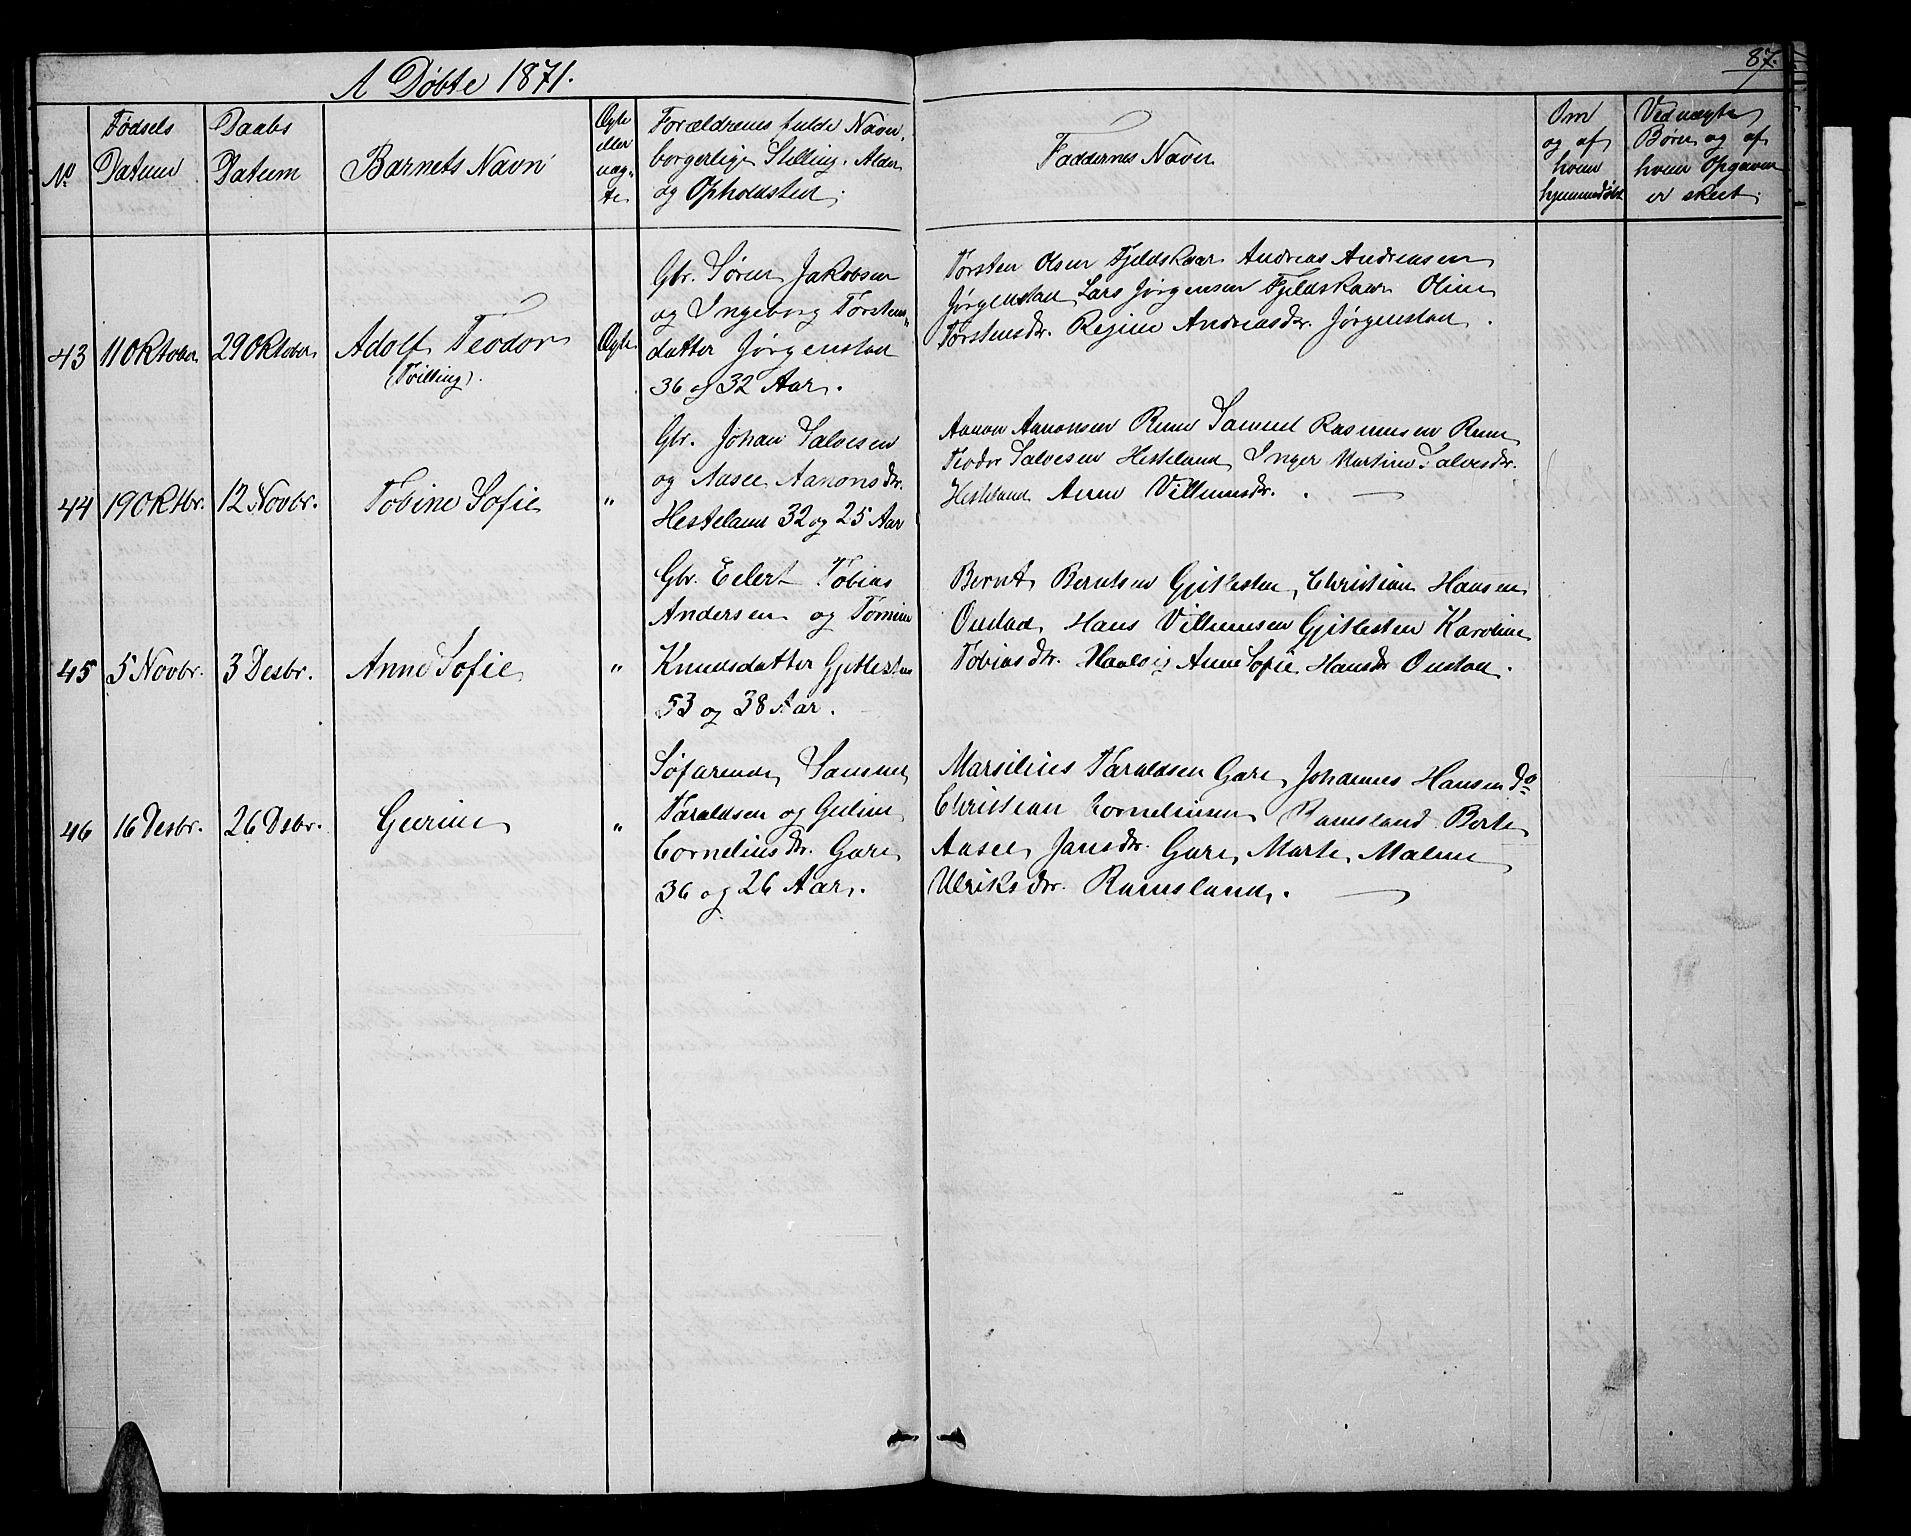 A Døbte 1871.
87.
No
Fødsels
Datum
Daabs
Datum
Barnets Navn
Ægte
eller
uæg-
te.
Forældrenes fulde Navn,
borgerlige Stilling, Alder
og Opholdsted.
Faddernes Navn
Om
og af
hvem
hjemmedøbt
Ved uægte
Børn og af
hvem Opgaven
er skeet.
43
11 Oktober
29 Oktober
Adolf Teodor
(Tvilling).
Ægte
Gbr. Søren Jakobsen
og Ingeborg Torstens-
datter Jørgenstad
36 og 32 Aar.
Torsten Olsen Fjeldskaar Andreas Andreasen
Jørgenstad Lars Jørgensen Fjeldskaar Oline
Torstensdr. Regine Andreasdr. Jørgenstad.
44
19 Oktbr.
12 Novbr.
Tobine Sofie
"
Gbr. Johan Salvesen
og Aasee Aanonsdr.
Hesteland 32 og 25 Aar
Aanon Aanonsen Samuel Rasmusen
Teodor Salvesen Hesteland Inger Martine Salvesdr.
Hesteland Villumsdr.
45
5 Novbr.
3 Desbr.
Anne Sofie
"
Gbr. Eilert Tobias
Andersen og Tomine
Knudsdatter Gjitlesten
53 og 38 Aar.
Bernt Berntsen Gjitlesten, Christian Hansen
Oustad, Hans Villumsen Gjitlesten Karoline
Tobiasdr. Anne Sofie Hansdr Oustad.
46
16 Desbr.
26 Dsbr.
Gurine
"
Søfarende Samuel
Taraldsen og Guline
Corneliusdr. Gare
36 og 26 Aar.
Marsilius Taraldsen Gare, Johannes Hansen do
Christian Corneliusen Ramsland Berte
Aasee Jansdr. Gare, Marte Malene
Ulriksdr. Ramsland.